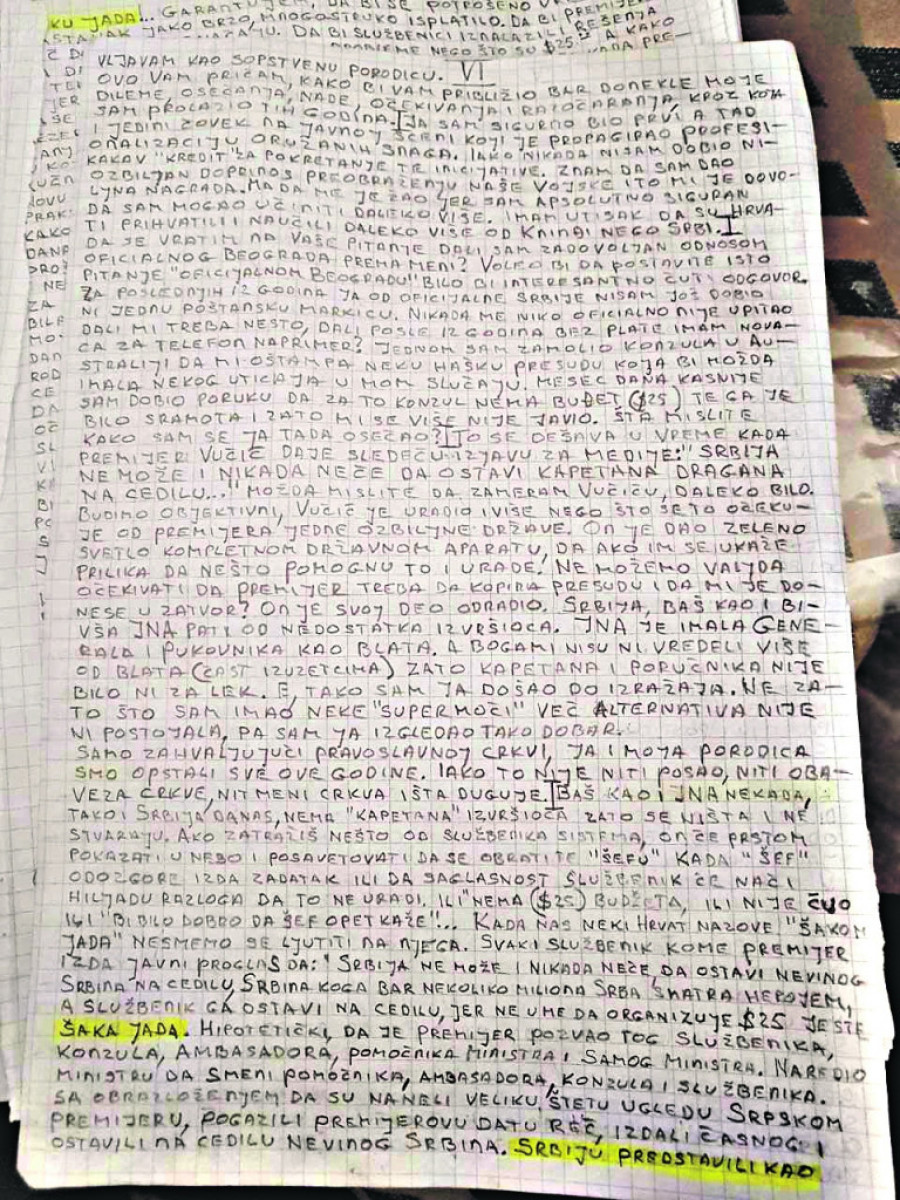 KU JADA... GARANTUJEM, DA BI SE POTROŠENO
JAKO BRZO, MNOGOSTRUKO ISPLATILO. DA BI PREMIJER
DA BI SLUŽBENICI IZNALAZILI REŠENJA
NEGO ŠTO SU $25. A KAKO
VLJAVAM KAO SOPSTVENU PORODICU. VI
OVO VAM PRIČAM, KAKO BI VAM PRIBLIŽIO BAR DONEKLE MOJE
DILEME, OSEĆANJA, NADE, OČEKIVANJA I RAZOČARANJA, KROZ KOJA
SAM PROLAZIO TIH GODINA. JA SAM SIGURNO BIO PRVI A TAD
I JEDINI ČOVEK NA JAVNOJ SCENI KOJI JE PROPAGIRAO PROFESI-
ONALIZACIJU ORUŽANIH SNAGA. IAKO NIKADA NISAM DOBIO NI-
KAKAV "KREDIT" ZA POKRETANJE TE INICIJATIVE. ZNAM DA SAM DAO
OZBILJAN DOPRINOS PREOBRAŽENJU NAŠE VOJSKE I TO MI JE DOVO-
LJNA NAGRADA. MADA ME JE ŽAO JER SAM APSOLUTNO SIGURAN
DA SAM MOGAO UČINITI DALEKO VIŠE. IMAM UTISAK DA SU HRVA-
TI PRIHVATILI I NAUČILI DALEKO VIŠE OD KNINA NEGO SRBI.
DA SE VRATIM NA VAŠE PITANJE DALI SAM ZADOVOLJAN ODNOSOM
OFICIALNOG BEOGRADA PREMA MENI? VOLEO BI DA POSTAVITE ISTO
PITANJE "OFICIJALNOM BEOGRADU" BILO BI INTERESANTNO ČUTI ODGOVOR.
ZA POSLEDNJIH 12 GODINA JA OD OFICIJALNE SRBIJE NISAM JOŠ DOBIO
NI JEDNU POŠTANSKU MARKICU. NIKADA ME NIKO OFICIALNO NIJE UPITAO
DALI MI TREBA NEŠTO, DALI POSLE 12 GODINA BEZ PLATE IMAM NOVA-
CA ZA TELEFON NAPRIMER? JEDNOM SAM ZAMOLIO KONZULA U AU-
STRALIJI DA MI OŠTAMPA NEKU HAŠKU PRESUDU KOJA BI MOŽDA
IMALA NEKOG UTICAJA U MOM SLUČAJU. MESEC DANA KASNIJE
SAM DOBIO PORUKU DA ZA TO KONZUL NEMA BUĐET ($25) TE GA JE
BILO SRAMOTA I ZATO MI SE VIŠE NIJE JAVIO. ŠTA MISLITE
KAKO SAM SE JA TADA OSEĆAO? TO SE DEŠAVA U VREME KADA
PREMIJER VUČIĆ DAJE SLEDEĆU IZJAVU ZA MEDIJE: "SRBIJA
NE MOŽE I NIKADA NEČE DA OSTAVI KAPETANA DRAGANA
NA CEDILU..." MOŽDA MISLITE DA ZAMERAM VUČIĆU, DALEKO BILO.
BUDIMO OBJEKTIVNI, VUČIĆ JE URADIO I VIŠE NEGO ŠTO SE TO OČEKU-
JE OD PREMIJERA JEDNE OZBILJNE DRŽAVE. ON JE DAO ZELENO
SVETLO KOMPLETNOM DRŽAVNOM APARATU, DA AKO IM SE UKAŽE
PRILIKA DA NEŠTO POMOGNU TO I URADE. NE MOŽEMO VALJDA
OČEKIVATI DA PREMIJER TREBA DA KOPIRA PRESUDU I DA MI JE DO-
NESE U ZATVOR? ON JE SVOJ DEO ODRADIO. SRBIJA, BAŠ KAO I BI-
VŠA JNA PATI OD NEDOSTATKA IZVRŠIOCA. JNA JE IMALA GENE-
RALA I PUKOVNIKA KAO BLATA. A BOGAMI NISU NI VREDELI VIŠE
OD BLATA (ČAST IZUZETCIMA) ZATO KAPETANA I PORUČNIKA NIJE
BILO NI ZA LEK. E, TAKO SAM JA DOŠAO DO IZRAŽAJA. NE ZA-
TO ŠTO SAM IMAO NEKE "SUPERMOČI" VEČ ALTERNATIVA NIJE
NI POSTOJALA, PA SAM JA IZGLEDAO TAKO DOBAR.
SAMO ZAHVALJUJUČI PRAVOSLAVNOJ CRKVI, JA I MOJA PORODICA
SMO OPSTALI SVE OVE GODINE. IAKO TO NIJE NITI POSAO, NITI OBA-
VEZA CRKVE, NIT MENI CRKVA IŠTA DUGUJE. BAŠ KAO I JNA NEKADA,
TAKO I SRBIJA DANAS, NEMA "KAPETANA" IZVRŠIOCA ZATO SE NIŠTA I NE
STVARAJU. AKO ZATRAŽIŠ NEŠTO OD SLUŽBENIKA SISTEMA, ON ČE PRSTOM
POKAZATI U NEBO I POSAVETOVATI DA SE OBRATITE "ŠEFU" KADA "ŠEF"
ODOZGORE IZDA ZADATAK ILI DA SAGLASNOST SLUŽBENIK ČE NAČI
HILJADU RAZLOGA DA TO NE URADI, ILI "NEMA ($25) BUDŽETA, ILI NIJE ČUO
ILI "BI BILO DOBRO DA ŠEF OPET KAŽE"!... KADA NAS NEKI HRVAT NAZOVE "ŠAKOM
JADA" NESMEMO SE LJUTITI NA NJEGA. SVAKI SLUŽBENIK KOME PREMIJER
IZDA JAVNI PROGLAS DA: "SRBIJA NE MOŽE I NIKADA NEČE DA OSTAVI NEVINOG
SRBINA NA CEDILU, SRBINA KOGA BAR NEKOLIKO MILIONA SRBA SMATRA HEROJEM,
A SLUŽBENIK GA OSTAVI NA CEDILU, JER NE UME DA ORGANIZUJE $25 JE ŠTE
ŠAKA JADA. HIPOTETIČKI, DA JE PREMIJER POZVAO TOG SLUŽBENIKA,
KONZULA, AMBASADORA, POMOČNIKA MINISTRA I SAMOG MINISTRA. NAREDIO
MINISTRU DA SMENI POMOČNIKA, AMBASADORA, KONZULA I SLUŽBENIKA.
SA OBRAZLOŽENJEM DA SU NANELI VELIKU ŠTETU UGLEDU SRPSKOM
PREMIJERU, POGAZILI PREMIJEROVU DATU REČ, IZDALI ČASNOG I
OSTAVILI NA CEDILU NEVINOG SRBINA. SRBIJU PREDSTAVILI KAO